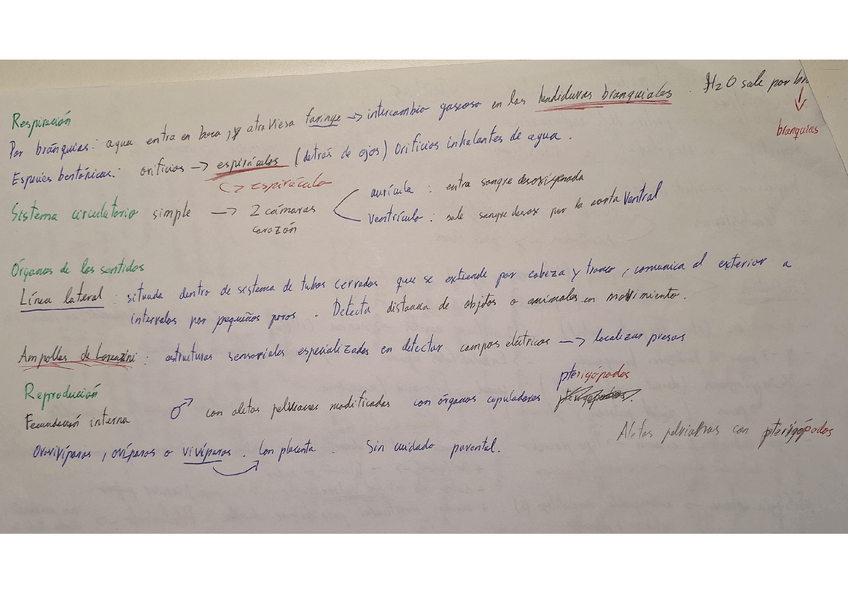 Respiración
Por branquias: agua entra en boca, y atraviesa faringe → intercambio gaseoso en las hendiduras branquiales. H2O sale por
branquias
Especies bentónicas: orificios → espiráculos (detrás de ojos) Orificios inhalantes de agua.
↳ espiráculo
Sistema circulatorio simple → 2 cámaras corazón
aurícula: entra sangre desoxigenada
ventrículo: sale sangre desox por la aorta ventral
Órganos de los sentidos
Línea lateral: situada dentro de sistema de tubos cerrados que se extiende por cabeza y tronco, comunica al exterior a
intervalos por pequeños poros. Detecta distancia de objetos o animales en movimiento.
Ampollas de Lorenzini: estructuras sensoriales especializadas en detectar campos eléctricos → localizar presas
Reproducción
pterigópodos
Fecundación interna ♂ con aletas pelvianas modificadas con órganos copuladores
Aletas pelvianas con pterigópodos
Ovovivíparos, ovíparos o vivíparos. Con placenta. Sin cuidado parental.